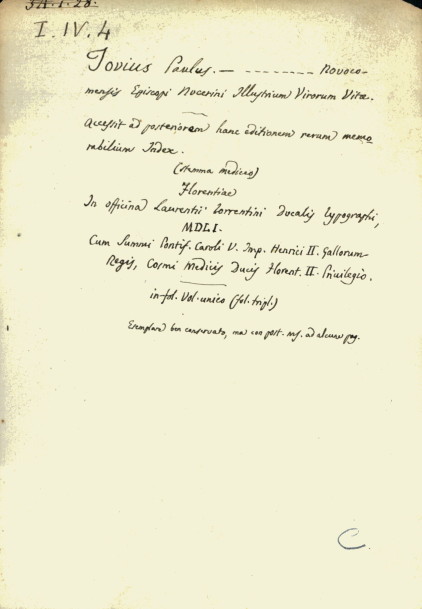 3A.1.28.
I.IV.4
Jovius Paulus. — - - - - - - - - Novoco-
mensis Episcopi Nucerini Illustrium Virorum Vitæ.
Accessit ad posteriorem hanc editionem rerum memo
rabilium Index.
(stemma mediceo)
Florentiae
In officina Laurentii Torrentini Ducalis typographi,
MDLI.
Cum Summi Pontif. Caroli V. Imp. Henrici II. Gallorum
Regis, Cosmi Medicis Ducis Florent. II. Privilegio.
in-fol. Vol. unico (fol. tripl.)
Esemplare ben conservato, ma con post. ms. ad alcune pag.
C.